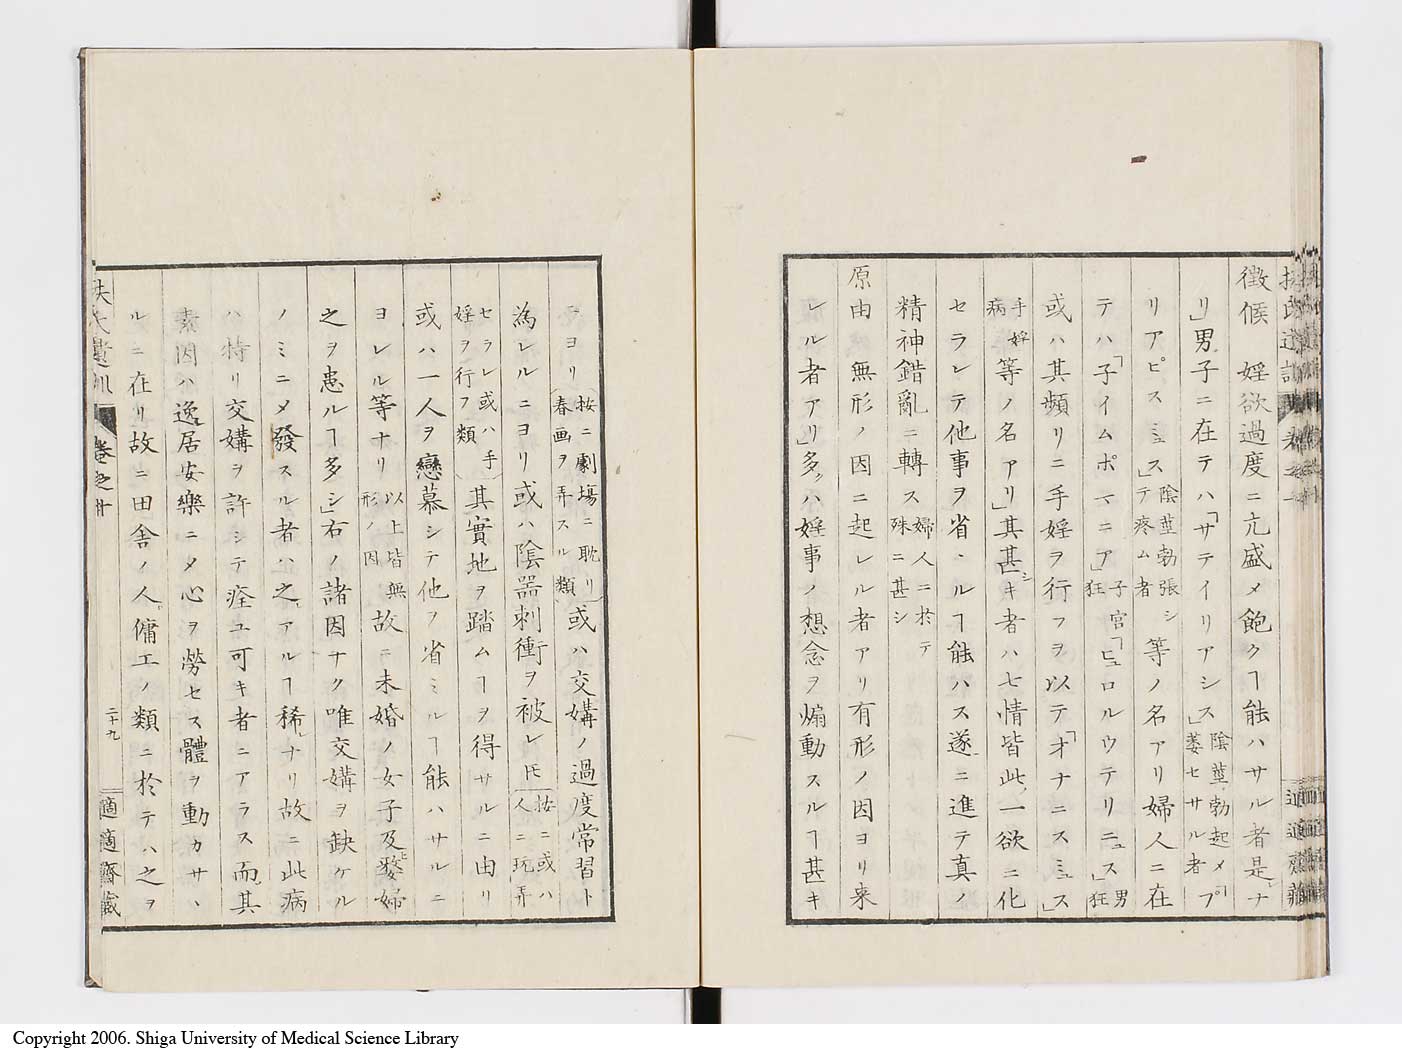 徴候　婬欲過度ニ亢盛〆飽クヿ能ハサル者是レナ
リ」男子ニ在テハ「サテイリアシス」陰莖勃起〆萎セサル者「プ
リアピスミュス」陰莖勃張シテ疼ム者等ノ名アリ婦人ニ在
テハ「子イムポマニア」子宮狂「ヒュロルウテリニュス」男狂
或ハ其頻リニ手婬ヲ行フヲ以テ「オナニスミュス」
手婬病等ノ名アリ」其甚シキ者ハ七情皆此ノ一欲ニ化
セラレテ他事ヲ省ミルヿ能ハス遂ニ進テ真ノ
精神錯亂ニ轉ス婦人ニ於テ殊ニ甚シ
原由　無形ノ因ニ起レル者アリ有形ノ因ヨリ来
レル者アリ」多クハ婬事ノ想念ヲ煽動スルヿ甚キ
ニヨリ(按ニ劇塲ニ耽リ春画ヲ弄スル類)或ハ交媾ノ過度常習ト
為レルニヨリ或ハ陰器刺衝ヲ被レ𪜈(按ニ或ハ人ニ玩弄
セラレ或ハ手婬ヲ行フ類)其實地ヲ踏ムヿヲ得サルニ由リ
或ハ一人ヲ戀慕シテ他ヲ省ミルヿ能ハサルニ
ヨレル等ナリ以上皆無形ノ因故ニ未婚ノ女子及ヒ嫠婦
之ヲ患ルヿ多シ」右ノ諸因ナク唯交媾ヲ缺ケル
ノミニ〆發スル者ハ之レアルヿ稀レナリ故ニ此病
ハ特リ交媾ヲ許シテ痊ユ可キ者ニアラス而〆其
素因ハ逸居安樂ニ〆心ヲ勞セス體ヲ動カサヽ
ルニ在リ故ニ田舎ノ人傭工ノ類ニ於テハ之ヲ
扶氏遺訓　卷之廿　二十九　適適齋藏